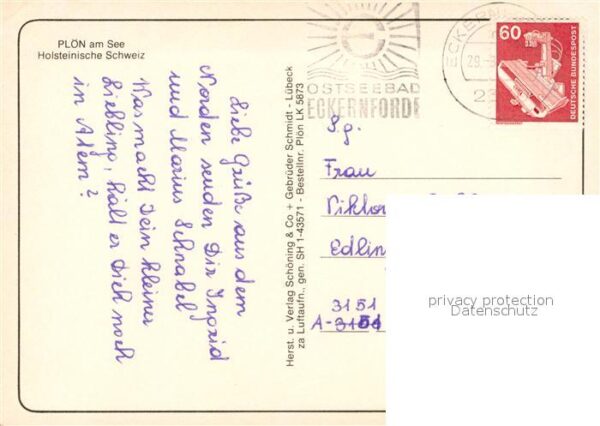 PLÖN am See
Holsteinische Schweiz
Liebe Grüße aus dem
Norden senden Dir Ingrid
und Marius Schnabel
Was macht Dein kleiner
Liebling, hält er Dich noch
in Atem?
Herst. u. Verlag Schöning & Co + Gebrüder Schmidt - Lübeck
za Luftaufn., gen. SH 1-43571 - Bestellnr. Plön LK 5873
OSTSEEBAD
ECKERNFÖRDE
60
DEUTSCHE BUNDESPOST
Frau
Edlin
3151
privacy protection
Datenschutz